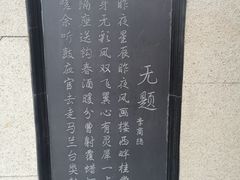 无题
李商隐
昨夜星辰昨夜风画楼西畔桂
身无彩凤双飞翼心有灵犀一
隔座送钩春酒暖分曹射覆蜡
嗟余听鼓应官去走马兰台类